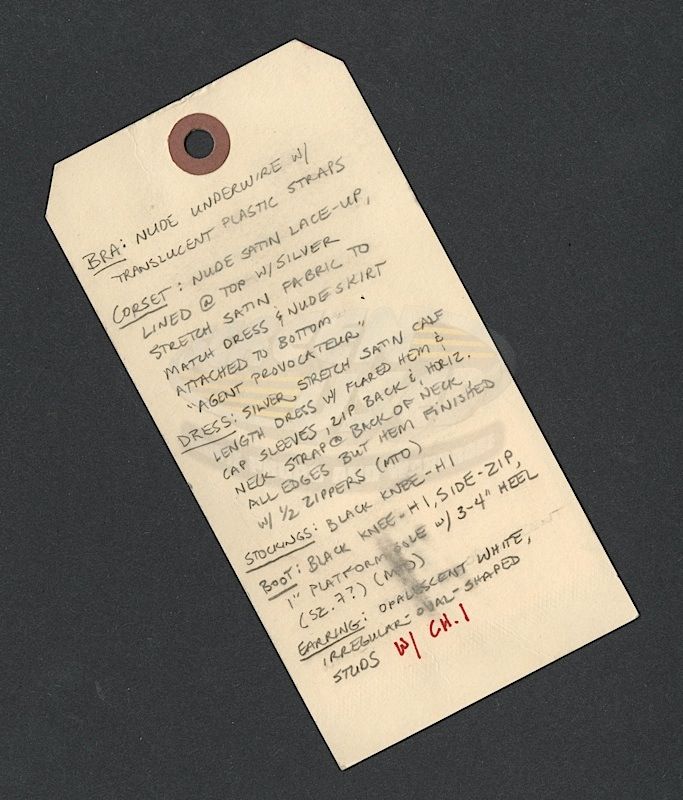 BRA: NUDE UNDERWIRE W/
TRANSLUCENT PLASTIC STRAPS
CORSET: NUDE SATIN LACE-UP,
LINED @ TOP W/ SILVER
STRETCH SATIN FABRIC TO
MATCH DRESS & NUDE SKIRT
ATTACHED TO BOTTOM
"AGENT PROVOCATEUR"
DRESS: SILVER STRETCH SATIN CALF
LENGTH DRESS W/ FLARED HEM &
CAP SLEEVES, ZIP BACK & HORIZ.
NECK STRAP @ BACK OF NECK,
ALL EDGES BUT HEM FINISHED
W/ 1/2 ZIPPERS (MTO)
STOCKINGS: BLACK KNEE-HI
BOOT: BLACK KNEE-HI, SIDE-ZIP,
1" PLATFORM SOLE W/ 3-4" HEEL
(SZ. 7?) (MTO)
EARRING: OPALESCENT WHITE,
IRREGULAR-OVAL-SHAPED
STUDS W/ CH.1